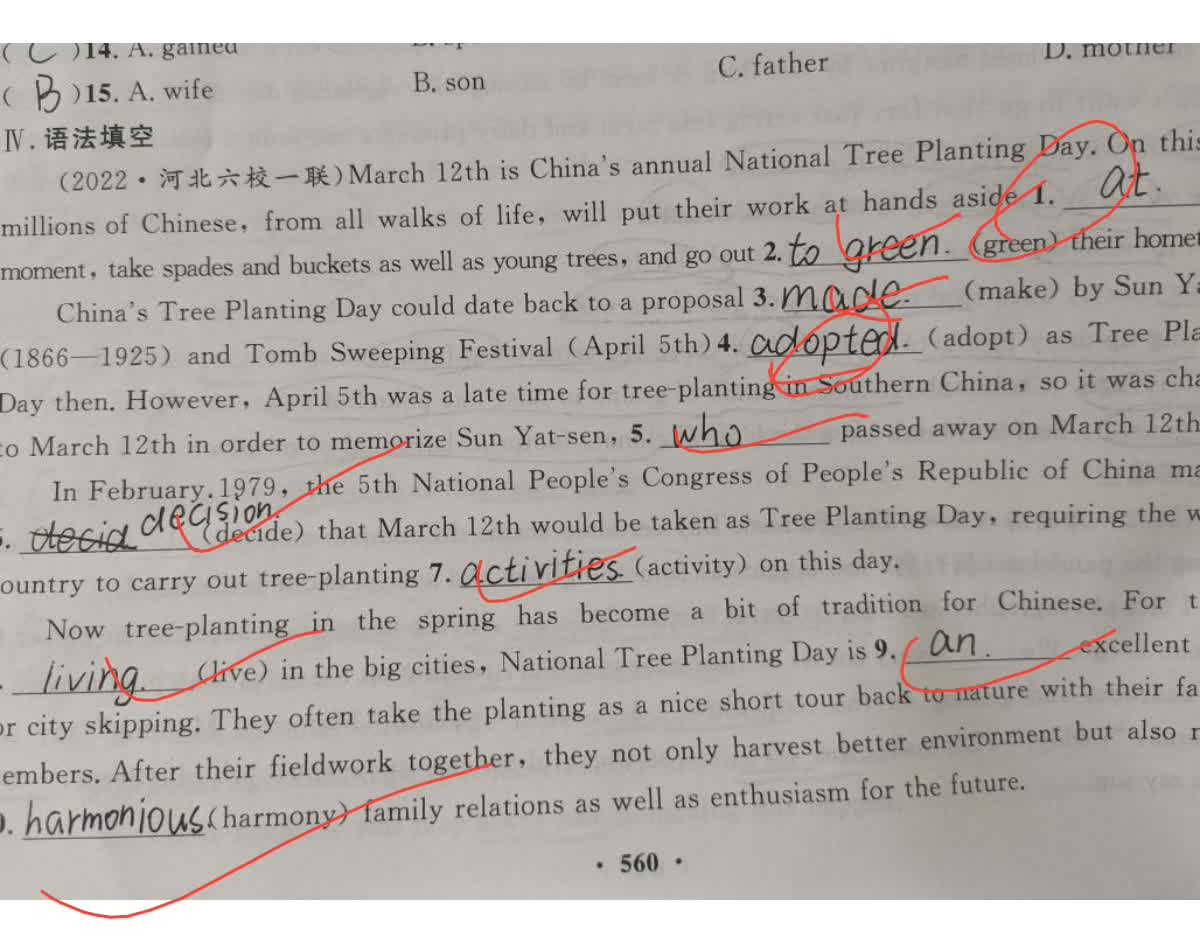 ( C )14. A. gained
( B )15. A. wife B. son C. father D. mother
Ⅳ.语法填空
(2022·河北六校一联)March 12th is China's annual National Tree Planting Day. On this
millions of Chinese, from all walks of life, will put their work at hands aside 1. at.
moment, take spades and buckets as well as young trees, and go out 2. to green. (green) their
China's Tree Planting Day could date back to a proposal 3. made. (make) by Sun
(1866—1925) and Tomb Sweeping Festival (April 5th) 4. adopted. (adopt) as Tree
Day then. However, April 5th was a late time for tree-planting in Southern China, so it was
to March 12th in order to memorize Sun Yat-sen, 5. who passed away on March 12th
In February.1979, the 5th National People's Congress of People's Republic of China
decid decision. (decide) that March 12th would be taken as Tree Planting Day, requiring the
ountry to carry out tree-planting 7. activities (activity) on this day.
Now tree-planting in the spring has become a bit of tradition for Chinese. For
living. (live) in the big cities, National Tree Planting Day is 9. an. excellent
or city skipping. They often take the planting as a nice short tour back to nature with their
embers. After their fieldwork together, they not only harvest better environment but also
harmonious (harmony) family relations as well as enthusiasm for the future.
· 560 ·